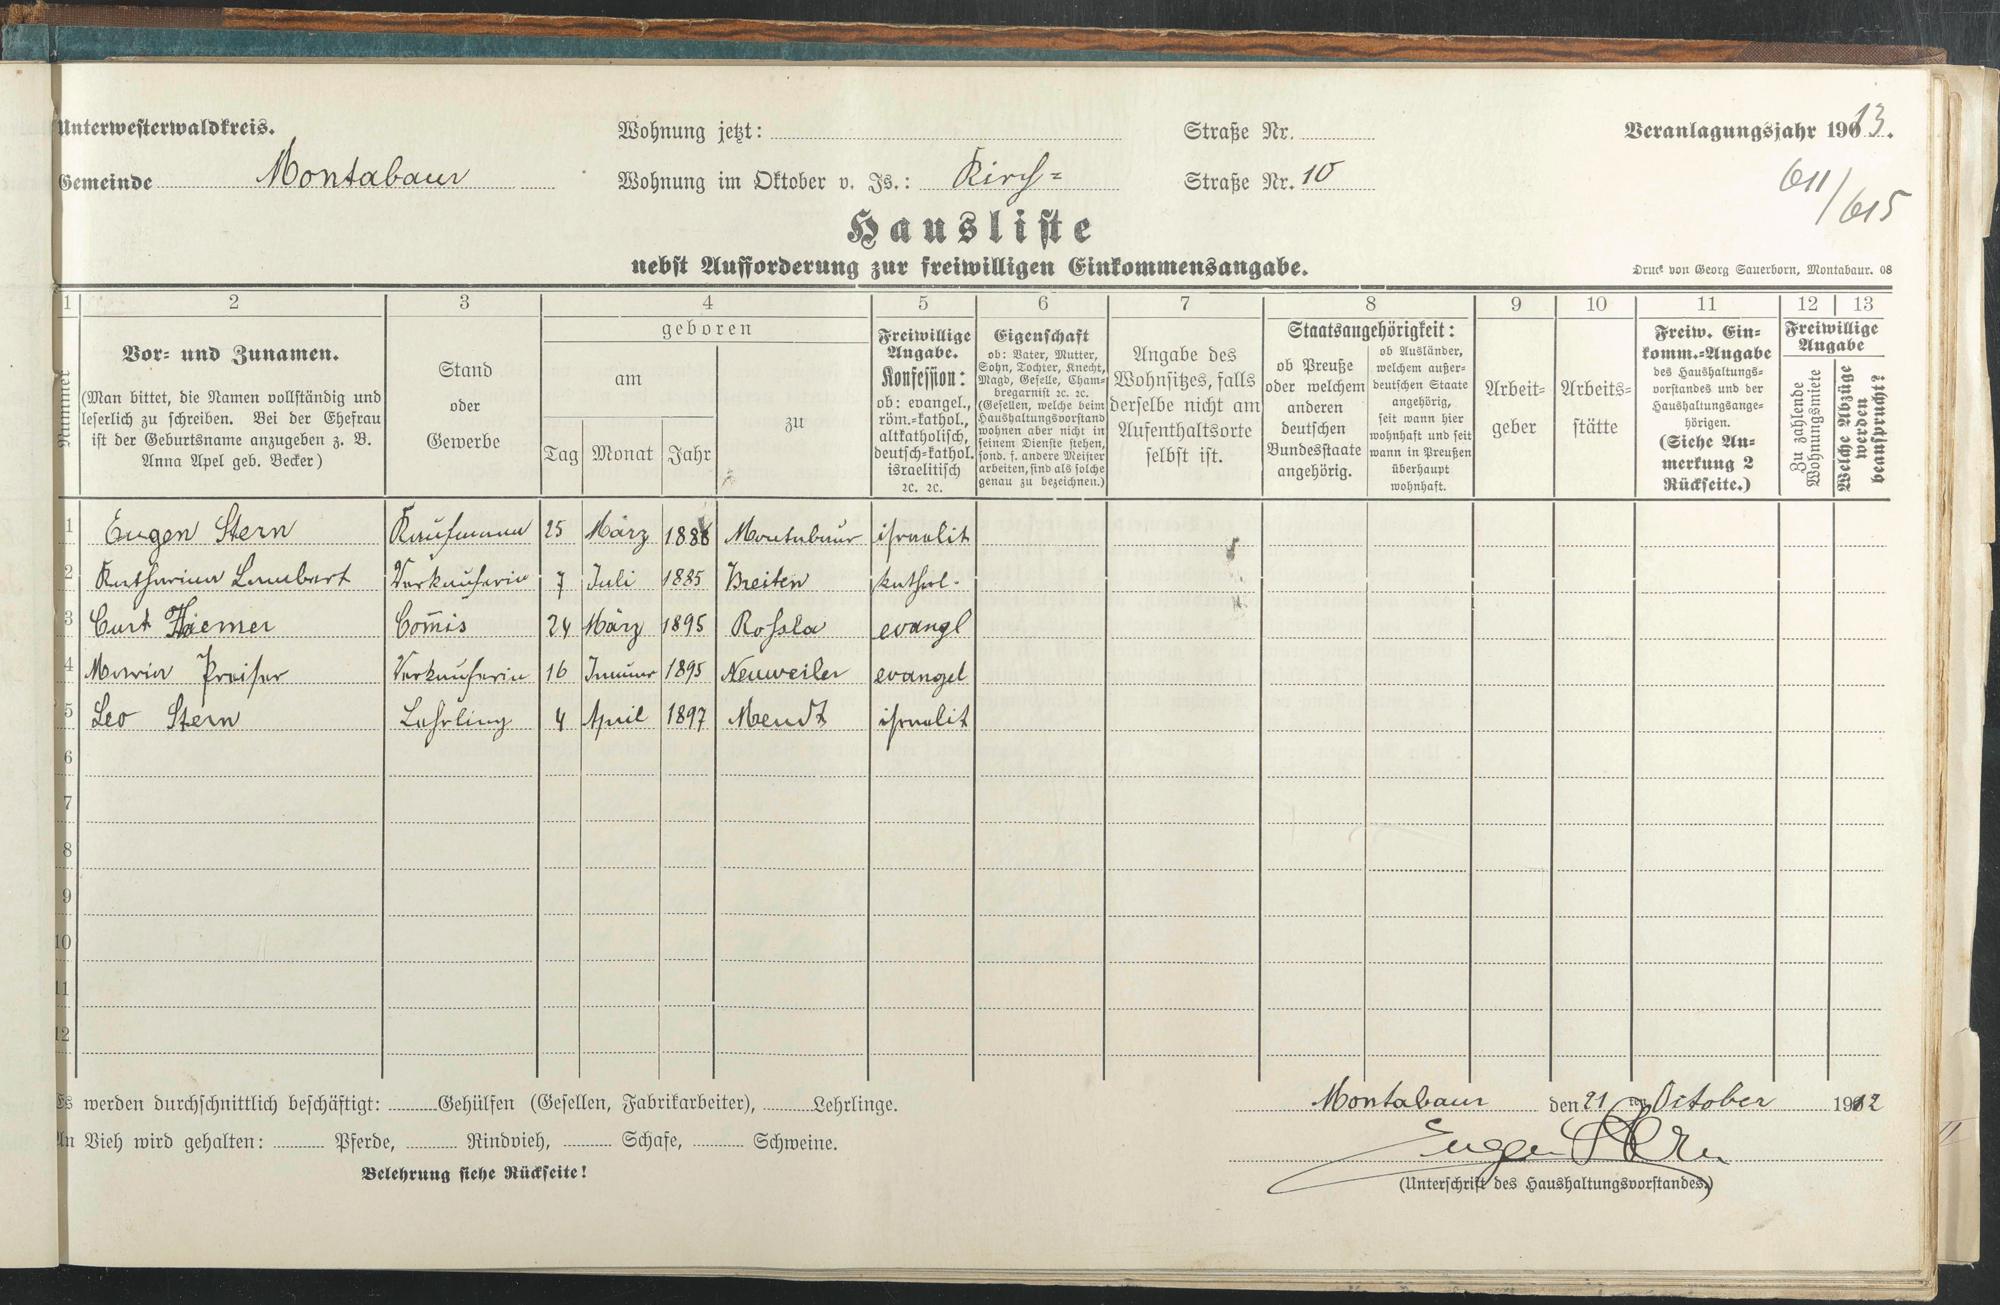 Unterwesterwaldkreis.
Wohnung jetzt: Straße Nr.
Veranlagungsjahr 1913.
Gemeinde Montabaur
Wohnung im Oktober v. Js.: Kirch= Straße Nr. 10
611/615
Hausliste
nebst Aufforderung zur freiwilligen Einkommensangabe.
Druck von Georg Sauerborn, Montabaur. 08
1 2 3 4 5 6 7 8 9 10 11 12 13
Nummer
Vor- und Zunamen.
(Man bittet, die Namen vollständig und
leserlich zu schreiben. Bei der Ehefrau
ist der Geburtsname anzugeben z. B.
Anna Apel geb. Becker)
Stand
oder
Gewerbe
geboren
am
Tag Monat Jahr
zu
Freiwillige
Angabe.
Konfession:
ob: evangel.,
röm.-kathol.,
altkatholisch,
deutsch-kathol.
israelitisch
2c. 2c.
Eigenschaft
ob: Vater, Mutter,
Sohn, Tochter, Knecht,
Magd, Geselle, Cham-
bregarnist 2c. 2c.
(Gesellen, welche beim
Haushaltungsvorstand
wohnen aber nicht in
seinem Dienste stehen,
sond. f. andere Meister
arbeiten, sind als solche
genau zu bezeichnen.)
Angabe des
Wohnsitzes, falls
derselbe nicht am
Aufenthaltsorte
selbst ist.
Staatsangehörigkeit:
ob Preuße
oder welchem
anderen
deutschen
Bundesstaate
angehörig.
ob Ausländer,
welchem außer-
deutschen Staate
angehörig,
seit wann hier
wohnhaft und seit
wann in Preußen
überhaupt
wohnhaft.
Arbeit-
geber
Arbeits-
stätte
Freiw. Ein-
komm.-Angabe
des Haushaltungs-
vorstandes und der
Haushaltungsange-
hörigen.
(Siehe An-
merkung 2
Rückseite.)
Freiwillige
Angabe
Zu zahlende
Wohnungsmiete
Welche Abzüge
werden
beansprucht?
1 Eugen Stern Kaufmann 25 März 1888 Montabaur israelit
2 Katharina Lambert Verkäuferin 7 Juli 1885 Breiten kathol.
3 Curt Thiemer Com̄is 24 März 1895 Rossla evangl
4 Maria Preiser Verkäuferin 16 Januar 1895 Neuweiler evangel
5 Leo Stern Lehrling 4 April 1897 Mendt israelit
6
7
8
9
10
11
12
Es werden durchschnittlich beschäftigt: Gehülfen (Gesellen, Fabrikarbeiter), Lehrlinge.
An Vieh wird gehalten: Pferde, Rindvieh, Schafe, Schweine.
Belehrung siehe Rückseite!
Montabaur den 21 ten October 1912
Eugen Stern
(Unterschrift des Haushaltungsvorstandes.)